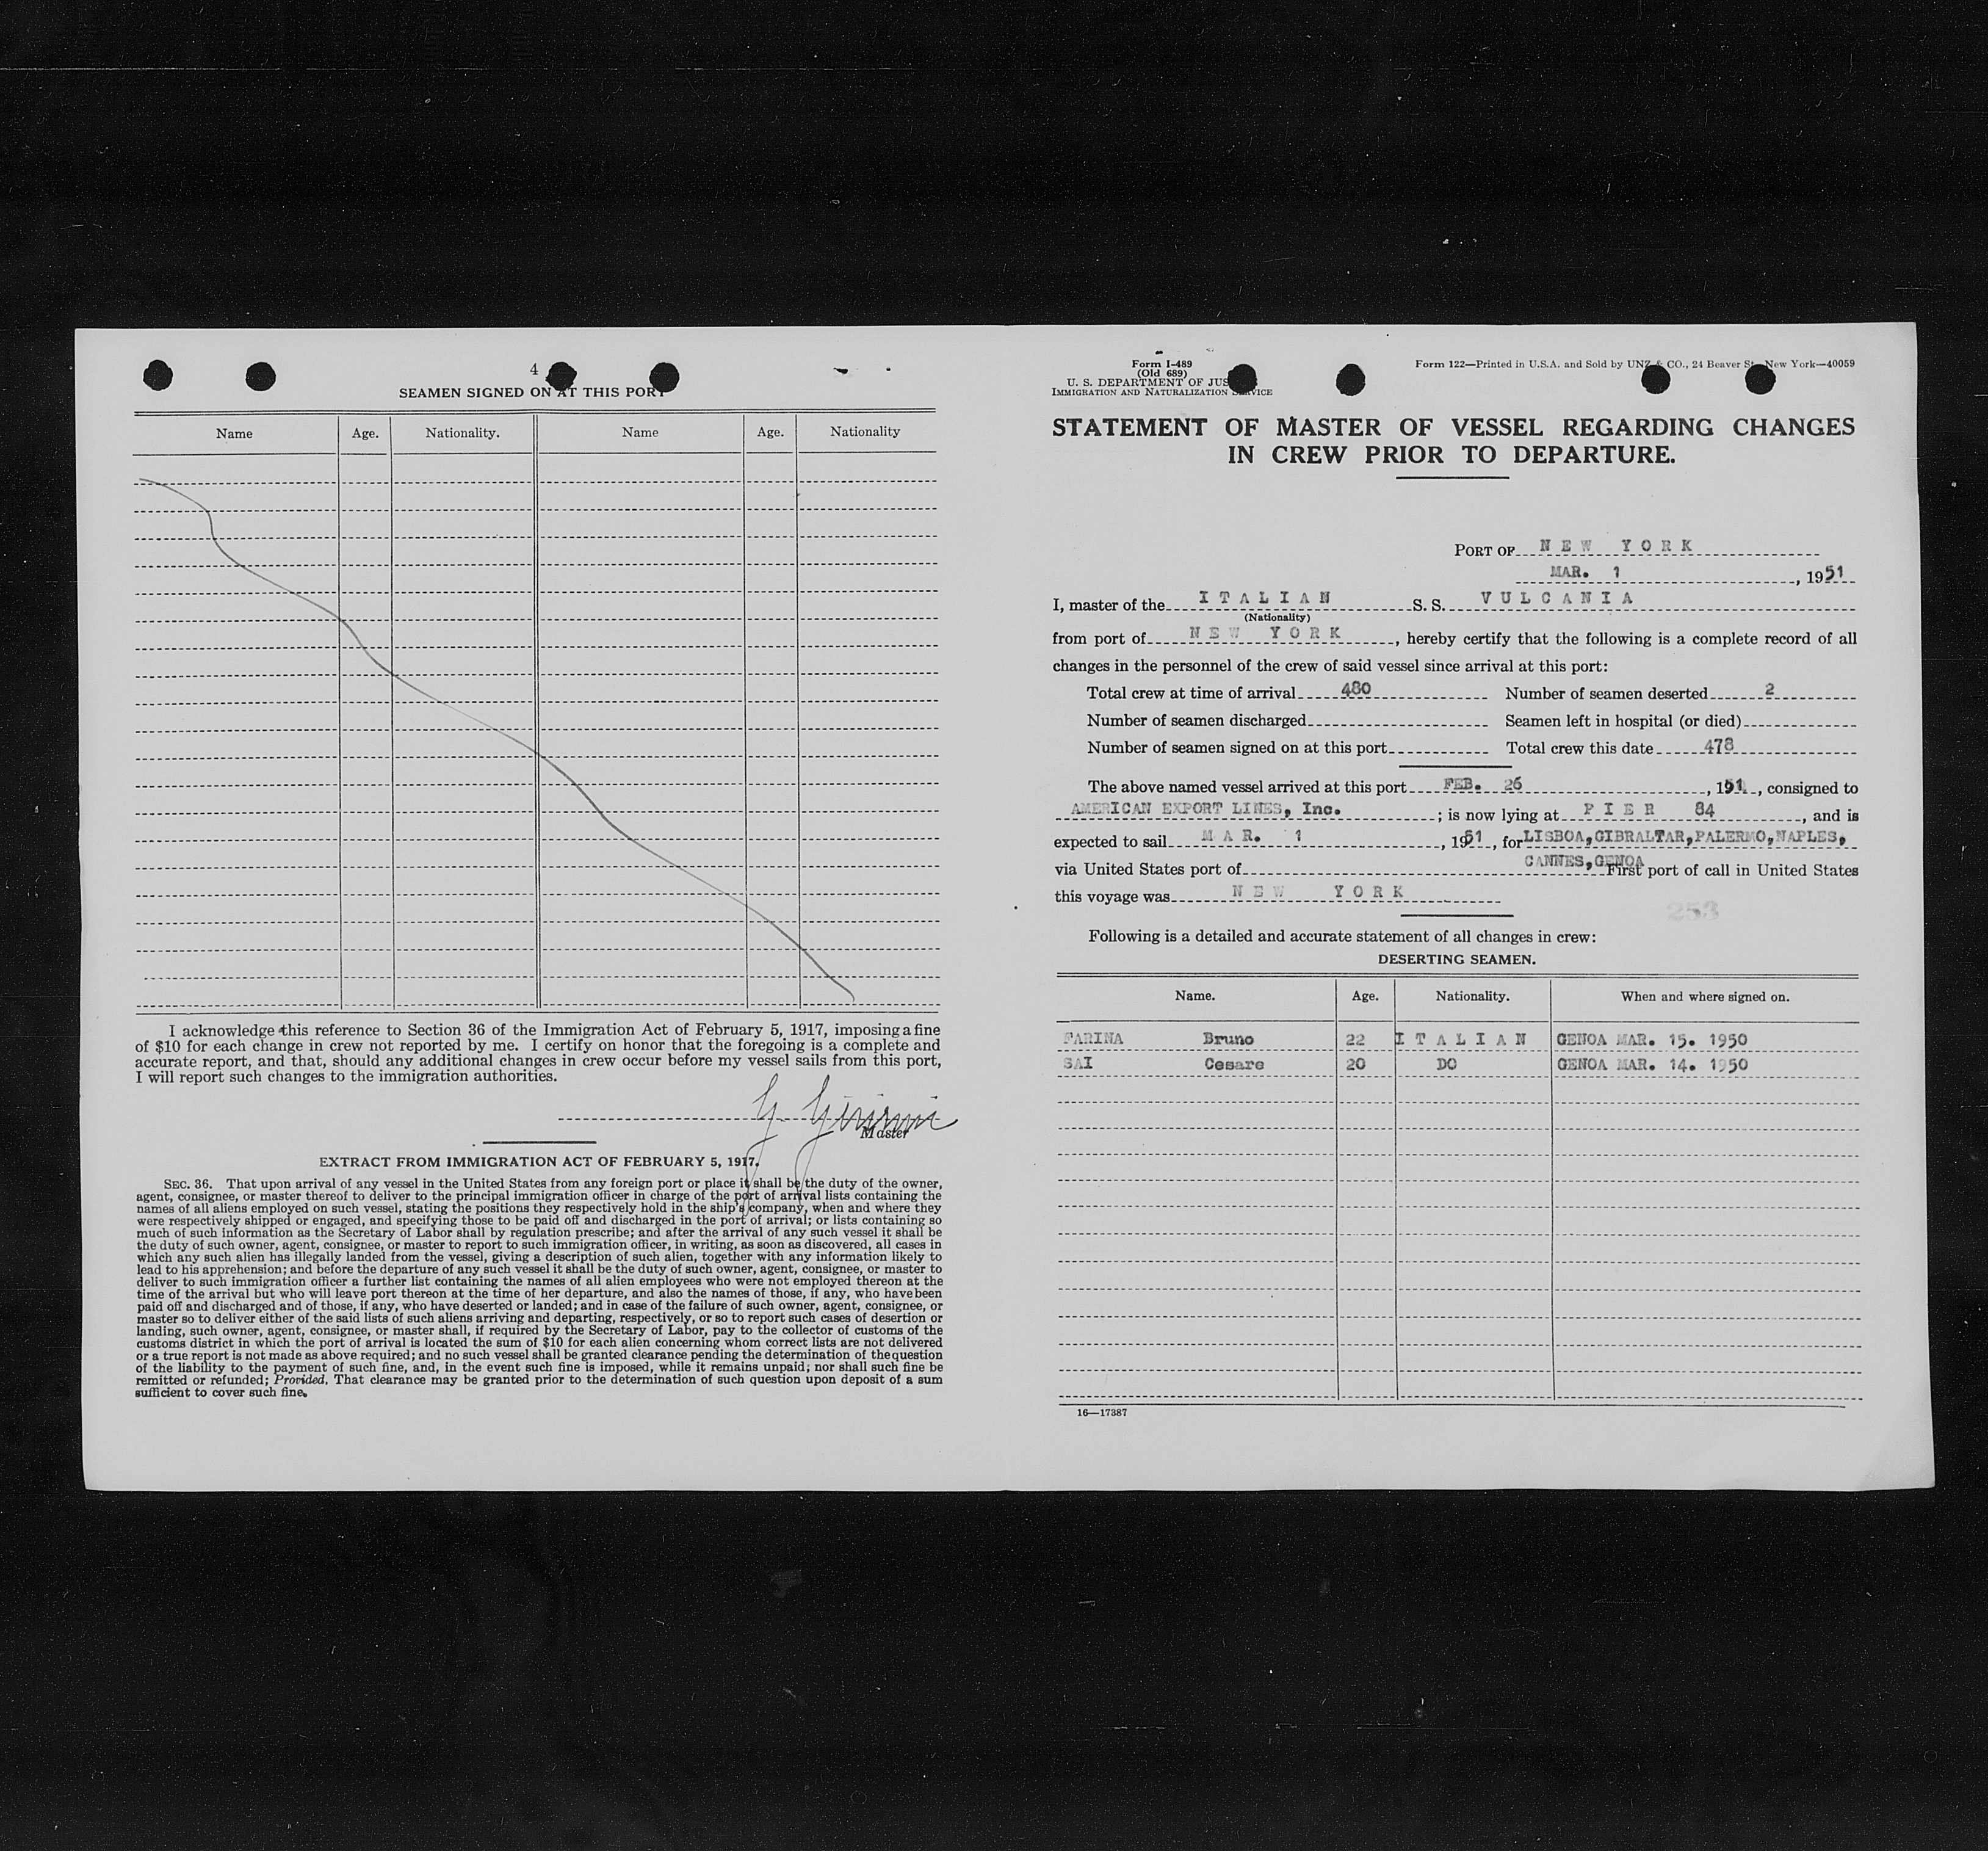 4
SEAMEN SIGNED ON AT THIS PORT
Name Age. Nationality. Name Age. Nationality
I acknowledge this reference to Section 36 of the Immigration Act of February 5, 1917, imposing a fine
of $10 for each change in crew not reported by me. I certify on honor that the foregoing is a complete and
accurate report, and that, should any additional changes in crew occur before my vessel sails from this port,
I will report such changes to the immigration authorities.
Master
EXTRACT FROM IMMIGRATION ACT OF FEBRUARY 5, 1917.
SEC. 36. That upon arrival of any vessel in the United States from any foreign port or place it shall be the duty of the owner,
agent, consignee, or master thereof to deliver to the principal immigration officer in charge of the port of arrival lists containing the
names of all aliens employed on such vessel, stating the positions they respectively hold in the ship's company, when and where they
were respectively shipped or engaged, and specifying those to be paid off and discharged in the port of arrival; or lists containing so
much of such information as the Secretary of Labor shall by regulation prescribe; and after the arrival of any such vessel it shall be
the duty of such owner, agent, consignee, or master to report to such immigration officer, in writing, as soon as discovered, all cases in
which any such alien has illegally landed from the vessel, giving a description of such alien, together with any information likely to
lead to his apprehension; and before the departure of any such vessel it shall be the duty of such owner, agent, consignee, or master to
deliver to such immigration officer a further list containing the names of all alien employees who were not employed thereon at the
time of the arrival but who will leave port thereon at the time of her departure, and also the names of those, if any, who have been
paid off and discharged and of those, if any, who have deserted or landed; and in case of the failure of such owner, agent, consignee, or
master so to deliver either of the said lists of such aliens arriving and departing, respectively, or so to report such cases of desertion or
landing, such owner, agent, consignee, or master shall, if required by the Secretary of Labor, pay to the collector of customs of the
customs district in which the port of arrival is located the sum of $10 for each alien concerning whom correct lists are not delivered
or a true report is not made as above required; and no such vessel shall be granted clearance pending the determination of the question
of the liability to the payment of such fine, and, in the event such fine is imposed, while it remains unpaid; nor shall such fine be
remitted or refunded; Provided, That clearance may be granted prior to the determination of such question upon deposit of a sum
sufficient to cover such fine.
Form I-489
(Old 689)
U. S. DEPARTMENT OF JUS
IMMIGRATION AND NATURALIZATION SERVICE
Form 122—Printed in U.S.A. and Sold by UNZ & CO., 24 Beaver St., New York—40059
STATEMENT OF MASTER OF VESSEL REGARDING CHANGES
IN CREW PRIOR TO DEPARTURE.
PORT OF NEW YORK
MAR. 1, 1951
I, master of the ITALIAN S. S. VULCANIA
(Nationality)
from port of NEW YORK, hereby certify that the following is a complete record of all
changes in the personnel of the crew of said vessel since arrival at this port:
Total crew at time of arrival 480 Number of seamen deserted 2
Number of seamen discharged Seamen left in hospital (or died)
Number of seamen signed on at this port Total crew this date 478
The above named vessel arrived at this port FEB. 26, 1951, consigned to
AMERICAN EXPORT LINES, Inc.; is now lying at PIER 84, and is
expected to sail MAR. 1, 1951, for LISBOA,GIBRALTAR,PALERMO,NAPLES,
CANNES,GENOA
via United States port of First port of call in United States
this voyage was NEW YORK
253
Following is a detailed and accurate statement of all changes in crew:
DESERTING SEAMEN.
Name. Age. Nationality. When and where signed on.
FARINA Bruno 22 ITALIAN GENOA MAR. 15. 1950
SAI Cesare 20 DO GENOA MAR. 14. 1950
16—17387